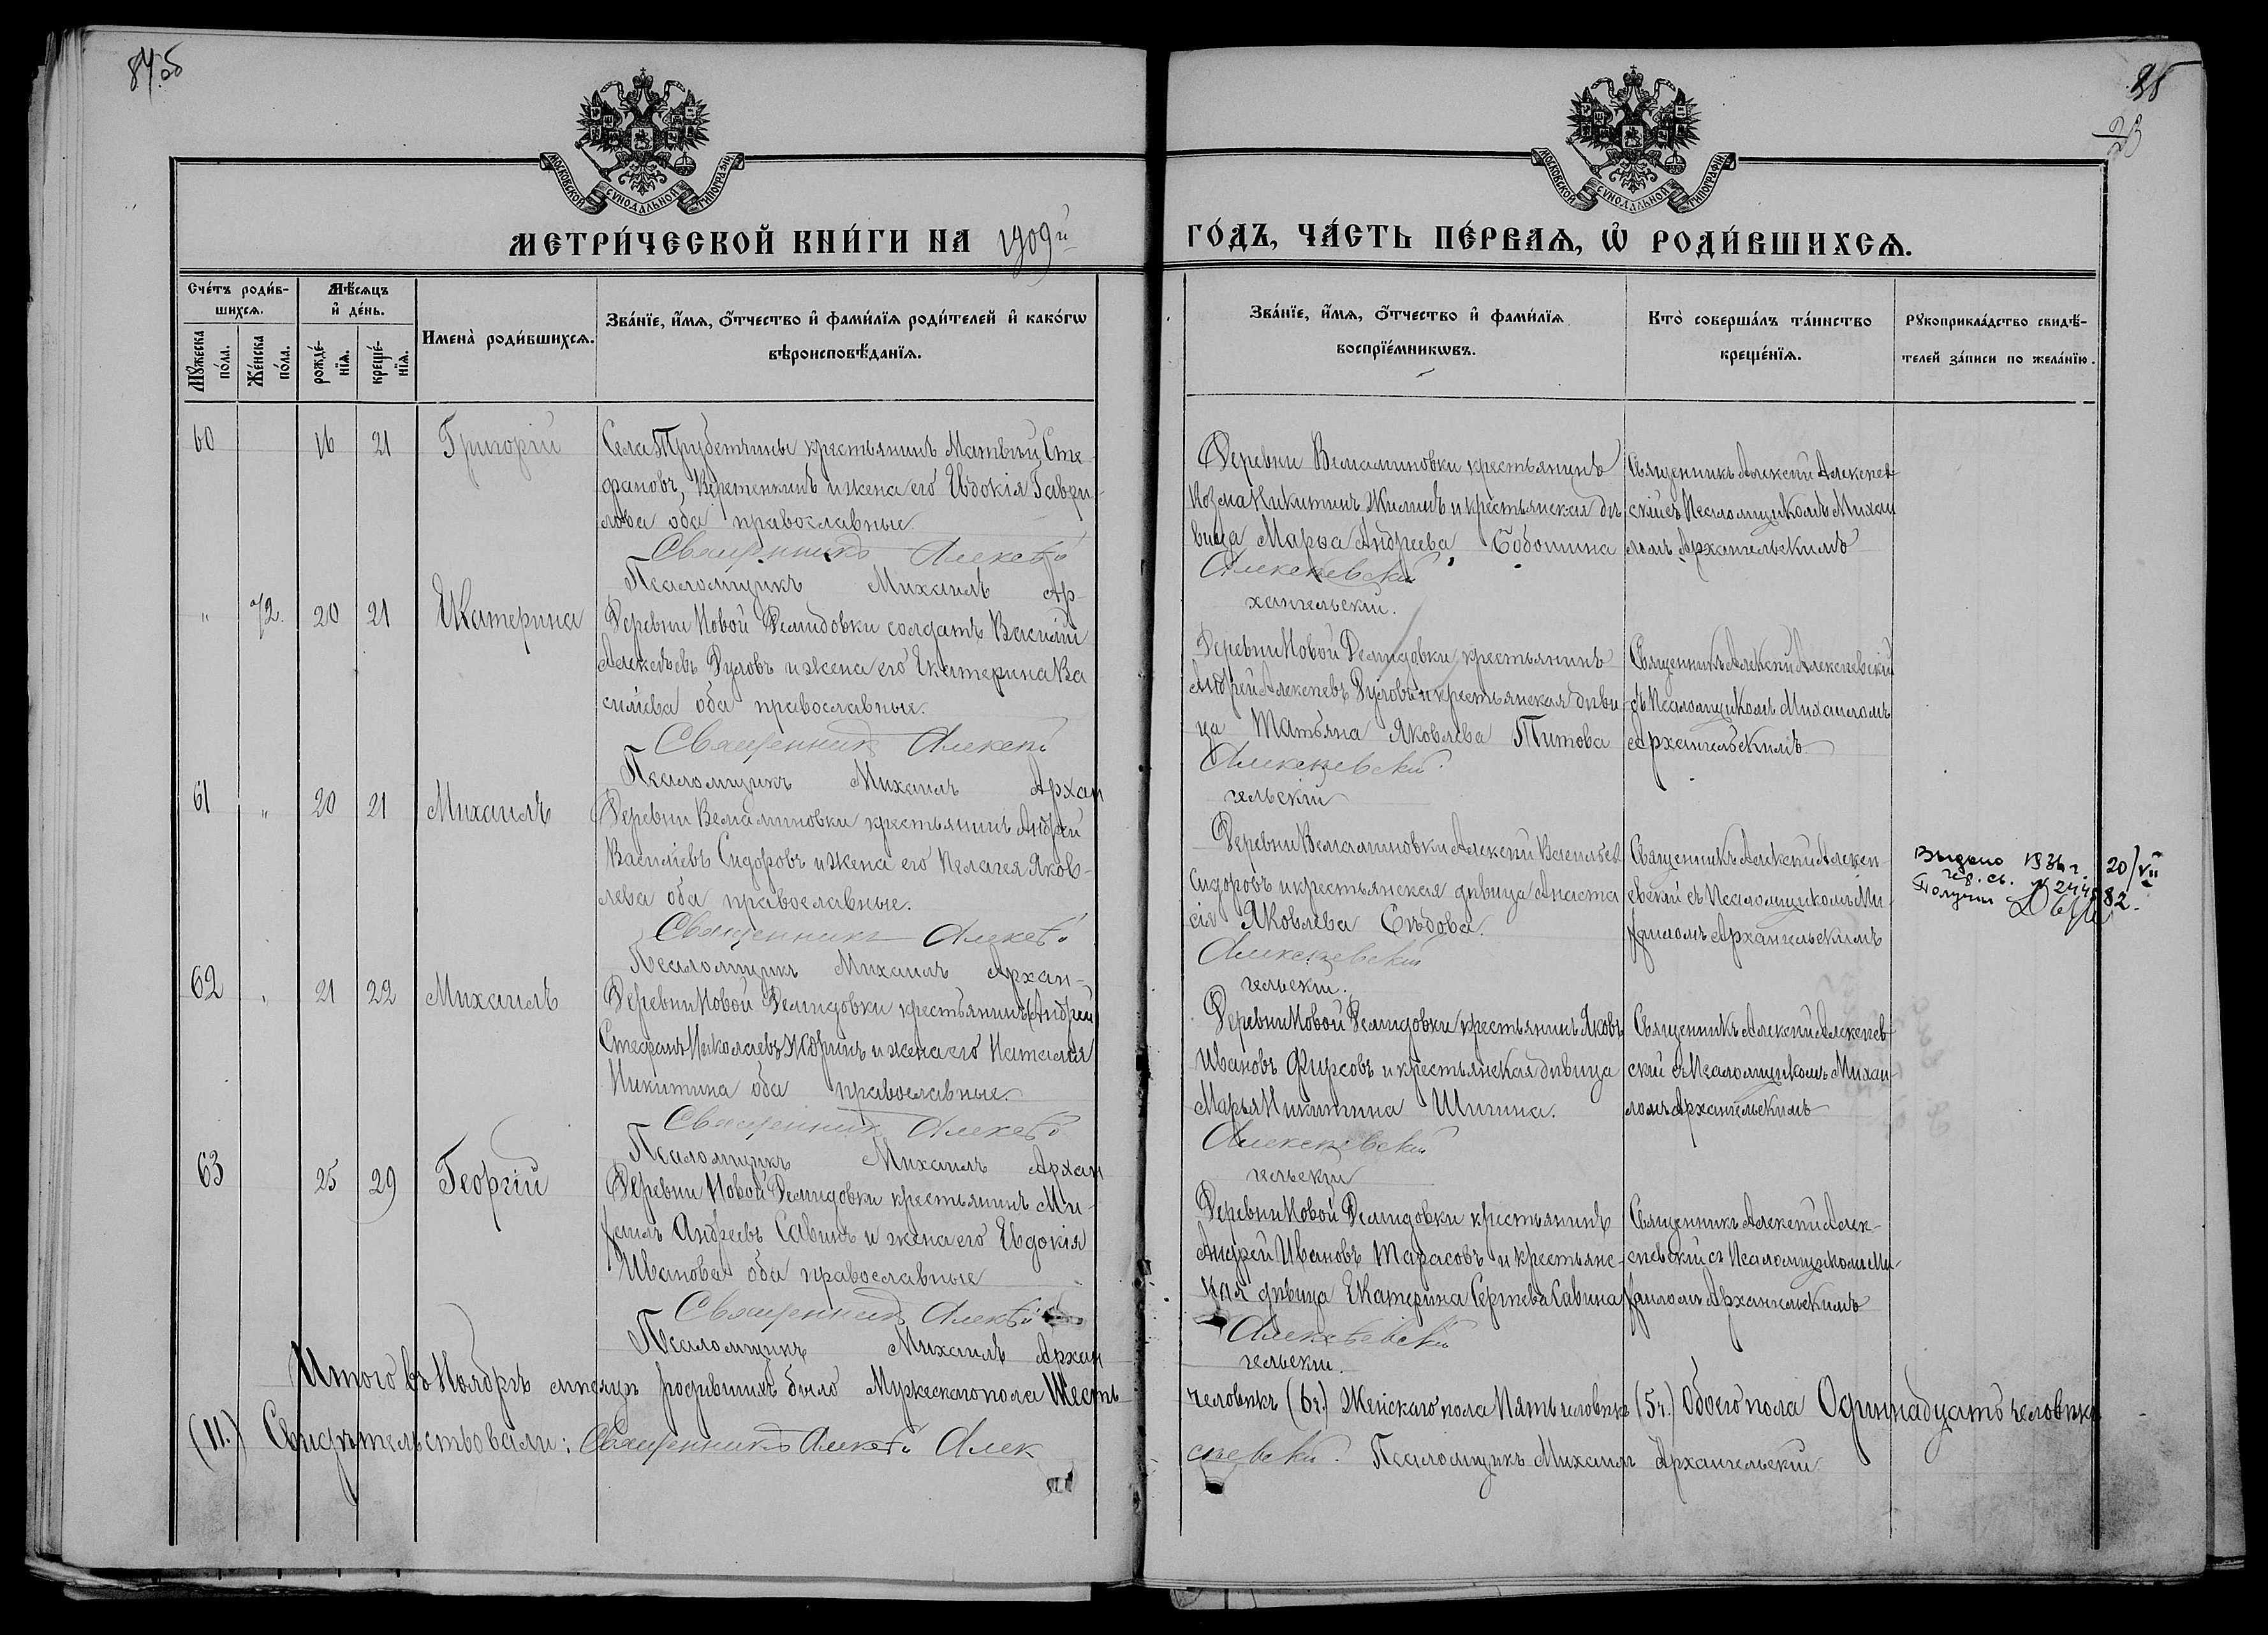 84об
85
МОСКОВСКОЙ СѴНОДАЛЬНОЙ ТИПОГРАФІИ
МОСКОВСКОЙ СѴНОДАЛЬНОЙ ТИПОГРАФІИ
МЕТРИ́ЧЕСКОЙ КНИ́ГИ НА 1909й
ГО́ДЪ, ЧА́СТЬ ПЕ́РВАѦ, Ѡ҆ РОДИ́ВШИХСѦ.
Сче́тъ роди́в-
шихсѧ.
Мꙋ́жеска по́ла.
Же́нска по́ла.
Мѣ́сѧцъ
и҆ де́нь.
рожде́-
нїѧ.
креще́-
нїѧ.
Имена̀ роди́вшихсѧ.
Зва́нїе, и҆́мѧ, ѻ҆́тчество и҆ фами́лїѧ роди́телей и҆ како́гѡ
вѣроисповѣ́данїѧ.
Зва́нїе, и҆́мѧ, ѻ҆́тчество и҆ фами́лїѧ
воспрїе́мникѡвъ.
Кто̀ соверша́лъ та́инство
креще́нїѧ.
Рꙋкоприкла́дство свидѣ́-
телей за́писи по жела́нїю.
60 16 21 Григорій
Села Трубетчины крестьянинъ Матвѣй Сте
фановъ Веретенкинъ и жена его Евдокія Гаври-
лова оба православные.
Священникъ Алексѣй
Псаломщикъ Михаилъ Ар-
Деревни Вельяминовки крестьянинъ
Козма Никитинъ Жилинъ и крестьянская дѣ
вица Марѳа Андреева
Алексѣевскій
хангельскій.
Священникъ Алексѣй Алексѣев
скій съ Псаломщикомъ Михаи
ломъ Архангельскимъ
" 72. 20 21 Екатерина
Деревни Новой Демидовки солдатъ Василій
Алексѣевъ Дуловъ и жена его Екатерина Ва
силіева оба православные.
Священникъ Алексѣй
Псаломщикъ Михаилъ Архан
Деревни Новой Демидовки крестьянинъ
Андрей Алексѣевъ Дуловъ и крестьянская дѣви
ца Татьяна Яковлева Титова
Алексѣевскій
гельскій
Священникъ Алексѣй Алексѣевскій
съ Псаломщикомъ Михаиломъ
Архангельскимъ
61 " 20 21 Михаилъ
Деревни Вельяминовки крестьянинъ Андрей
Василіевъ Сидоровъ и жена его Пелагея Яков-
лева оба православные.
Священникъ Алексѣй
Псаломщикъ Михаилъ Архан-
Деревни Вельяминовки Алексѣй Васильев
Сидоровъ и крестьянская дѣвица Анаста
сія Яковлева Сѣдова.
Алексѣевскій
гельскій.
Священникъ Алексѣй Алексѣ-
евскій съ Псаломщикомъ Ми-
хаиломъ Архангельскимъ
Выдано 1936 г. 20/VII
82.
62 " 21 22 Михаилъ
Деревни Новой Демидовки крестьянинъ Андрей
Стефанъ Николаевъ и жена его Наталія
Никитина оба православные.
Священникъ Алексѣй
Псаломщикъ Михаилъ Архан
Деревни Новой Демидовки крестьянинъ Яковъ
Ивановъ Фирсовъ и крестьянская дѣвица
Марья Никитина Шигина.
Алексѣевскій
гельскій
Священникъ Алексѣй Алексѣев
скій съ Псаломщикомъ Михаи-
ломъ Архангельскимъ
63 25 29 Георгій
Деревни Новой Демидовки крестьянинъ Ми-
хаилъ Андреевъ Савинъ и жена его Евдокія
Иванова оба православные
Священникъ Алексѣй
Псаломщикъ Михаилъ Архан
Деревни Новой Демидовки крестьянинъ
Андрей Ивановъ Тарасовъ и крестьянс-
кая дѣвица Екатерина Сергѣева Савина
Алексѣевскій
гельскій.
Священникъ Алексѣй Алек-
сѣевскій съ Псаломщикомъ Ми-
хаиломъ Архангельскимъ
Итого въ Ноябрѣ мѣсяцѣ родившихъ было Мужескаго пола Шесть
человѣкъ (6ч.) Женскаго пола Пять человѣкъ (5ч.) Обоего пола Одиннадцать человѣкъ
(11.) Свидѣтельствовали: Священникъ Алексѣй Алек
сѣевскій. Псаломщикъ Михаилъ Архангельскій